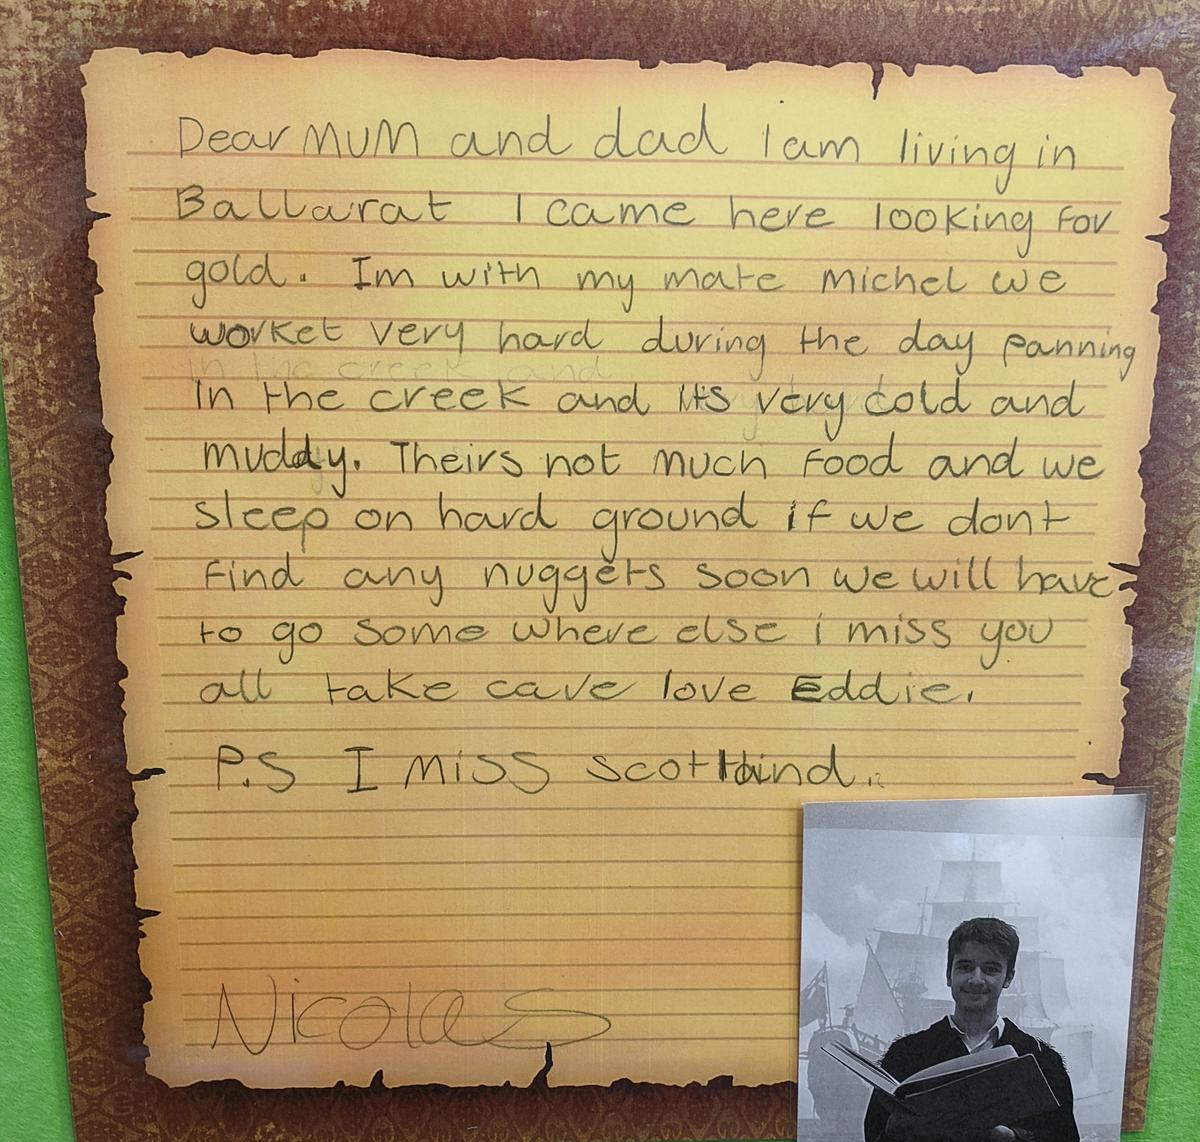 Dear MUM and dad I am living in
Ballarat I came here looking for
gold. Im with my mate Michel we
worket very hard during the day panning
in the creek and
in the creek and it's very cold and
muddy. Theirs not much food and we
sleep on hard ground if we dont
find any nuggets soon we will have
to go some where else i miss you
all take care love Eddie.
P.S I miss scotland.
Nicolas